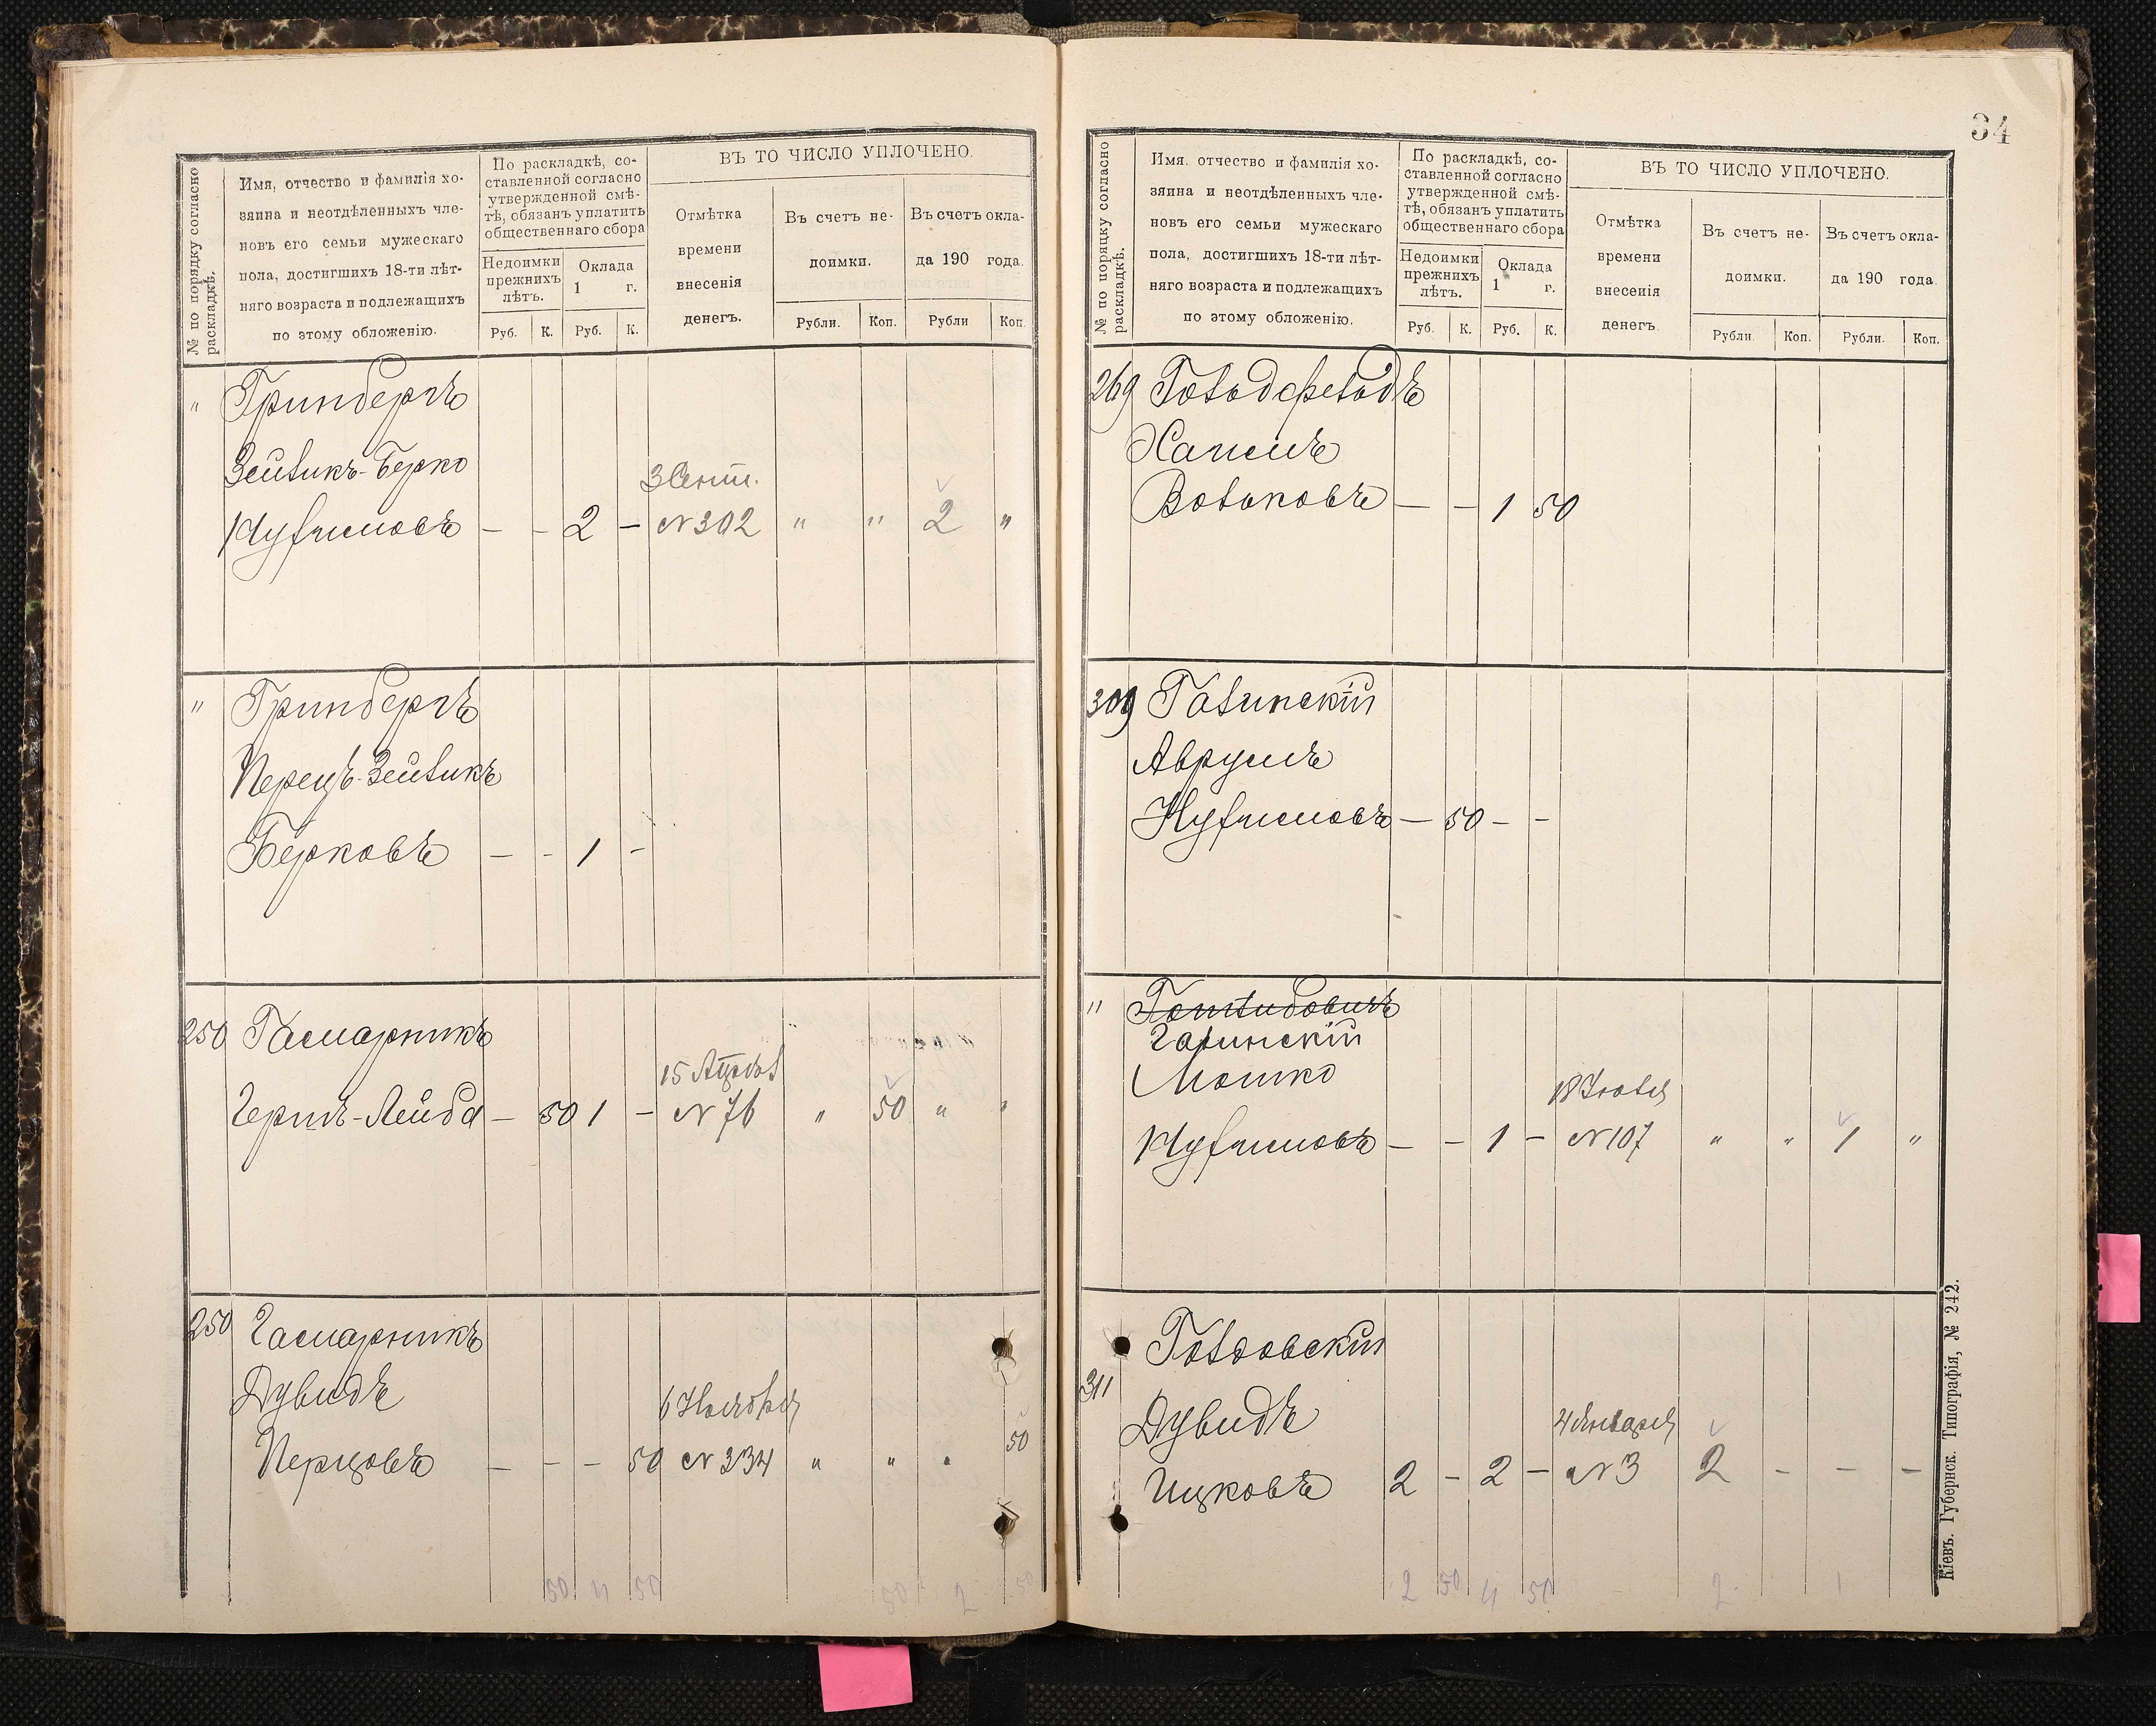 34
№ по порядку согласно раскладкѣ.
Имя, отчество и фамилія хо-
зяина и неотдѣленныхъ чле-
новъ его семьи мужескаго
пола, достигшихъ 18-ти лѣт-
няго возраста и подлежащихъ
по этому обложенію.
По раскладкѣ, со-
ставленной согласно
утвержденной смѣ-
тѣ, обязанъ уплатить
общественнаго сбора
Недоимки
прежнихъ
лѣтъ.
Оклада
1 г.
Руб. К. Руб. К.
ВЪ ТО ЧИСЛО УПЛОЧЕНО.
Отмѣтка
времени
внесенія
денегъ.
Въ счетъ не-
доимки.
Въ счетъ окла-
да 190 года.
Рубли. Коп. Рубли Коп.
" Гринбергъ
Зейликъ-Берко
3 Сент.
Нухимовъ — - 2 — № 302 " " 2 "
" Гринбергъ
Перецъ-Зейликъ
Берковъ — - 1 -
250 Гасмарникъ
15 Апрѣл
Герш-Лейба — 50 1 — № 76 " 50 " "
250 Гасмарникъ
Дувидъ
6 Ноября
Перцовъ — - — 50 № 334 " " " 50
50 4 50 50 2 50
№ по порядку согласно раскладкѣ.
Имя. отчество и фамилія хо-
зяина и неотдѣленныхъ чле-
новъ его семьи мужескаго
пола, достигшихъ 18-ти лѣт-
няго возраста и подлежащихъ
по этому обложенію.
По раскладкѣ, со-
ставленной согласно
утвержденной смѣ-
тѣ, обязанъ уплатить
общественнаго сбора
Недоимки
прежнихъ
лѣтъ.
Оклада
1 г.
Руб. К. Руб. К.
ВЪ ТО ЧИСЛО УПЛОЧЕНО.
Отмѣтка
времени
внесенія
денегъ.
Въ счетъ не-
доимки.
Въ счетъ окла-
да 190 года.
Рубли. Коп. Рубли. Коп.
269 Гольдфельдъ
Хаимъ
Вольковъ — — 1 50
309 Галинскій
Аврумъ
Нухимовъ — 50 - -
"
Галинскій
Мошко
18 Іюля
Нухимовъ — - 1 - № 107 " " 1 "
Голдовскій
311
Дувидъ
4 Января
Ицковъ 2 - 2 - № 3 2 - - -
2 50 4 50 2 1
Кіевъ. Губернск. Типографія, № 242.